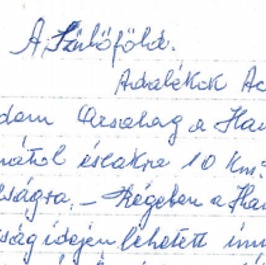 A Szülőföld.
Adalékok Ac
dom Acsahag a Han
nától északra 10 Km:
ságra. – Régeben a Han
ság idején lehetett